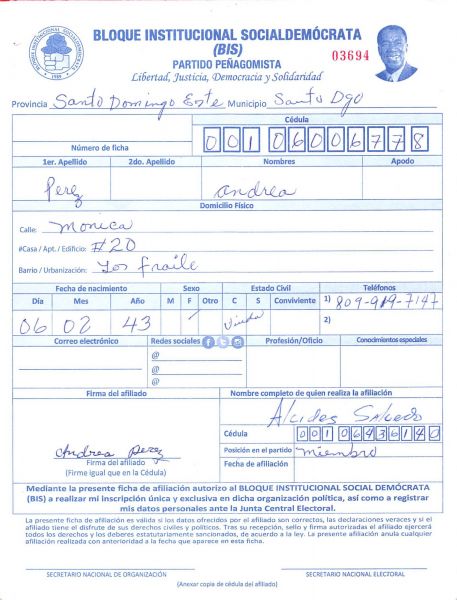 BLOQUE INSTITUCIONAL SOCIALDEMÓCRATA
(BIS)
03694
PARTIDO PEÑAGOMISTA
Libertad, Justicia, Democracia y Solidaridad
Provincia Santo Domingo Este Municipio Santo Dgo
Cédula
Número de ficha 0 0 1 0 6 0 0 6 7 7 8
1er. Apellido 2do. Apellido Nombres Apodo
Perez Andrea
Domicilio Físico
Calle: Monica
#Casa / Apt. / Edificio: #20
Barrio / Urbanización: Los Fraile
Fecha de nacimiento Sexo Estado Civil Teléfonos
Día Mes Año M F Otro C S Conviviente 1) 809-919-7147
06 02 43 Viuda 2)
Correo electrónico Redes sociales Profesión/Oficio Conocimientos especiales
@
@
@
Firma del afiliado Nombre completo de quien realiza la afiliación
Alcides Salcedo
Cédula 0 0 1 0 6 4 3 6 1 4 0
Andrea Perez
Posición en el partido Miembro
Firma del afiliado
(Firme igual que en la Cédula)
Fecha de afiliación
Mediante la presente ficha de afiliación autorizo al BLOQUE INSTITUCIONAL SOCIAL DEMÓCRATA
(BIS) a realizar mi inscripción única y exclusiva en dicha organización política, así como a registrar
mis datos personales ante la Junta Central Electoral.
La presente ficha de afiliación es válida si los datos ofrecidos por el afiliado son correctos, las declaraciones veraces y si el
afiliado tiene el disfrute de sus derechos civiles y políticos. Tras su recepción, sello y firma autorizadas el afiliado ejercerá
todos los derechos y los deberes estatutariamente sancionados, de acuerdo a la ley. La presente afiliación anula cualquier
afiliación realizada con anterioridad a la fecha que aparece en esta ficha.
SECRETARIO NACIONAL DE ORGANIZACIÓN SECRETARIO NACIONAL ELECTORAL
(Anexar copia de cédula del afiliado)